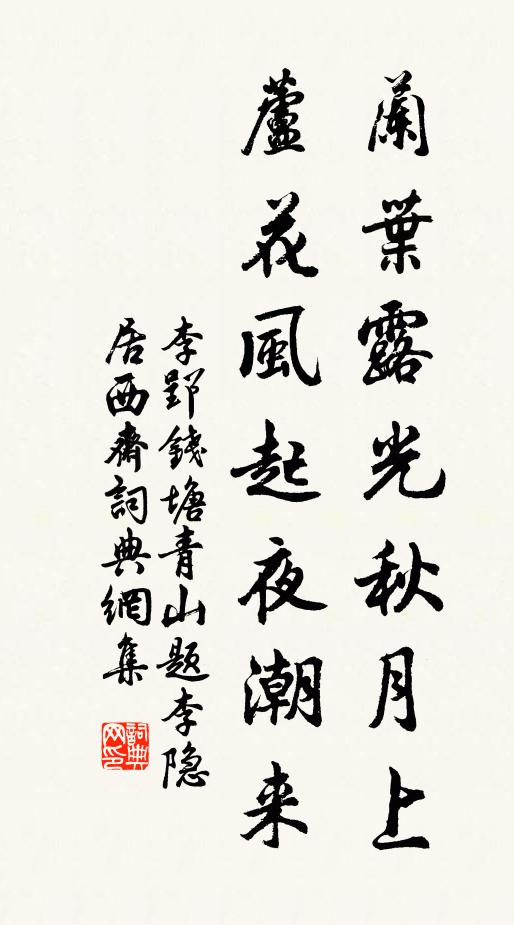 蘭葉露光秋月上
蘆花風起夜潮来
李郢錢塘青山题李隐
居西齋詞典網集
詞典网印